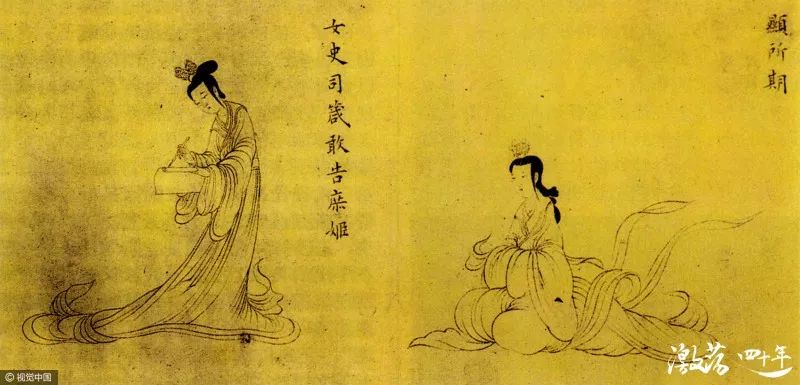 顯所期
女史司箴敢告庶姬
激荡 四十年
视觉中国